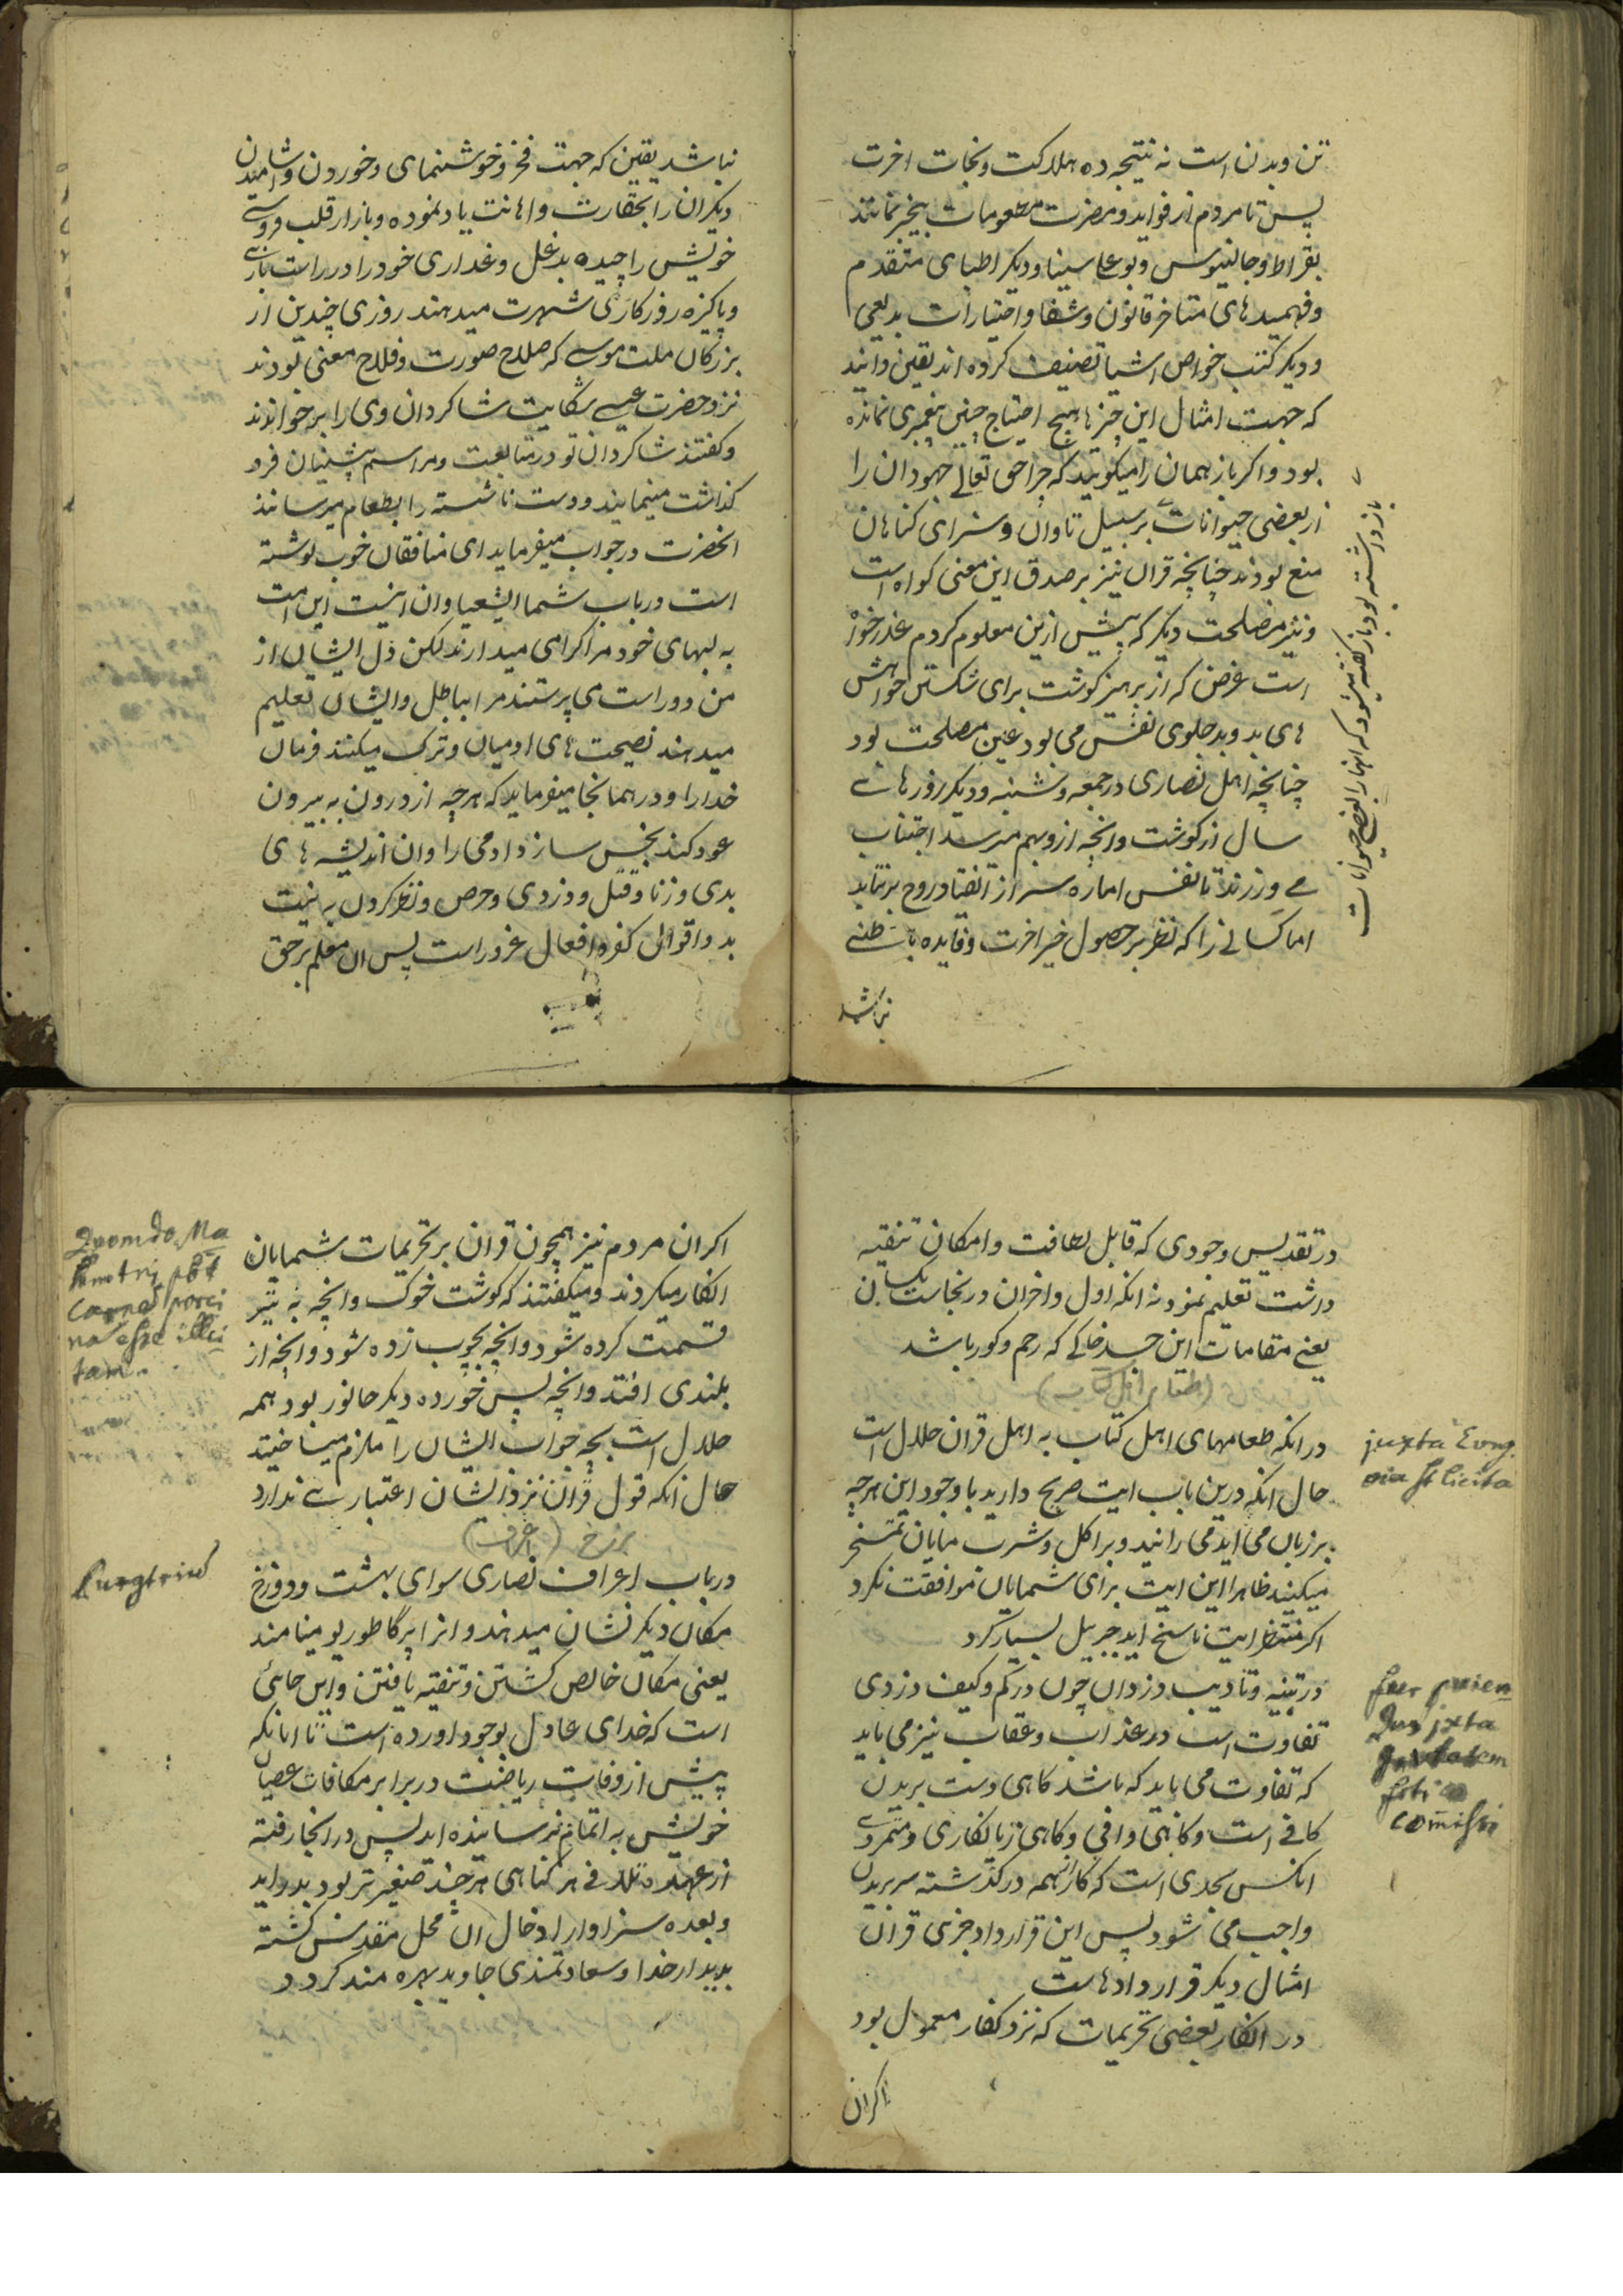 تن وبدن است نه نتیجه ده هلاکت ونجات اخرت
پس تا مردم از فواید ومضرت مطعومات بیخبر نمانند
بقراط وجالینوس وبوعلی سینا ودیکر اطبای متقدم
وفهمیدهای متاخر قانون وشفا واختیارات بدیعی
ودیکر کتب خواص اشیا تصنیف کرده اند یقین دانید
که جهت امثال این چیزها هیچ احتیاج چنین پیغمبری نمانده
بود واکر باز همان را میکوئید که چرا حق تعالی جهودان را
از بعضی حیوانات بر سبیل تاوان وسزای کناهان
منع بودند چنانچه قران نیز بر صدق این معنی کواه است
ونیز مصلحت دیکر که پیش ازین معلوم کردم عذرخواه
است غرض که از پرهیز کوشت برای شکستن خواهش
های بد وبد جلوی نفس می بود عین مصلحت بود
چنانچه اهل نصاری در جمعه وشنبه ودیکر روزهای
سال از کوشت وانچه ازو بهم میرسد اجتناب
می ورزند تا نفس اماره سر از انقیاد روح برنتابد
اما کسانی را که نظر بر حصول خیر اخرت وفایده باطنی
نباشد
باز داشته بود باز کفته میشود که انها را بعضی حیوانات
نباشد یقین که جهت فخر وخوشنمای وخوردن واشامیدن
دیکران را بحقارت واهانت یاد نموده وبازار قلب فروشی
خویش را چیده بدغل وغداری خود را در راست بازی
وپاکیزه روزکاری شهرت میدهند روزی چندین از
بزرکان ملت موسی که صلاح صورت وفلاح معنی بودند
نزد حضرت عیسی شکایت شاکردان وی را برخواندند
وکفتند شاکردان تو در متابعت ومراسم پیشینیان فرو
کذاشت مینمایند ودست ناشسته را بطعام میرسانند
انحضرت در جواب میفرماید ای منافقان خوب نوشته
است در باب شما اشعیا وان اینست این امت
به لبهای خود مرا کرامی میدارند لکن دل ایشان از
من دور است می پرستند مرا بباطل وایشان تعلیم
میدهند نصیحت های ادمیان وترک میکنند فرمان
خدا را ودر همانجا میفرماید که هرچه از درون به بیرون
عود کند نجس سازد ادمی را وان اندیشه های
بدی وزنا وقتل ودزدی وحرص ونظر کردن به نیت
بد واقوال کفر وافعال غرور است پس ان معلم برحق
در تقدیس وجودی که قابل لطافت وامکان تنقیه
داشت تعلیم نمود نه انکه اول واخران در نجاست یکسان
یعنی مقامات این جسد خاکی که رحم وکور باشد
(طعام اهل کتاب)
در انکه طعامهای اهل کتاب به اهل قران حلال است
حال انکه درین باب ایت صریح دارید با وجود این هرچه
بر زبان می اید می رانید وبر اکل وشرب مایان تمسخر
میکنید ظاهرا این ایت برای شمایان موافقت نکرد
اکر منتظر ایت ناسخ اید جبریل بسیار کرد
juxta Evang
nia st licita
در تنبیه وتادیب دزدان چون در کم وکیف دزدی
تفاوت است در عذاب وعقاب نیز می باید
که تفاوت می باید که باشد کاهی دست بریدن
کافی است وکاهی وافی وکاهی زیانکاری ومتمردی
انکس بحدی است که کار از همه درکذشته سر بریدن
واجب می شود پس این قرارداد جزئی قران
امثال دیکر قراردادهاست
در انکار بعضی تحریمات که نزد کفار معمول بود
اکران
juxta
comissi
اکران مردم نیز همچون قران بر تحریمات شمایان
انکار میکردند ومیکفتند که کوشت خوک وانچه به تیر
قسمت کرده شود وانچه بچوب زده شود وانچه از
بلندی افتد وانچه پس خورده دیکر جانور بود همه
حلال است بچه جواب ایشان را ملزم میساختید
حال انکه قول قران نزد ایشان اعتباری ندارد
برزخ (اعراف)
در باب اعراف نصاری سوای بهشت ودوزخ
مکان دیکر نشان میدهند وانرا پرگاطوریو مینامند
یعنی مکان خالص کشتن وتنقیه یافتن واین جائی
است که خدای عادل بوجود اورده است تا انانکه
پیش از وفات ریاضت در برابر مکافات عصیان
خویش به اتمام نرسانیده اند پس در انجا رفته
از عهده تلافی هر کناهی هرچند صغیرتر بود بدر اید
وبعده سزاوار ادخال ان محل مقدس کشته
بدیدار خدا وسعادتمندی جاوید بهره مند کردد
carnes porci
na esse illici
tam.